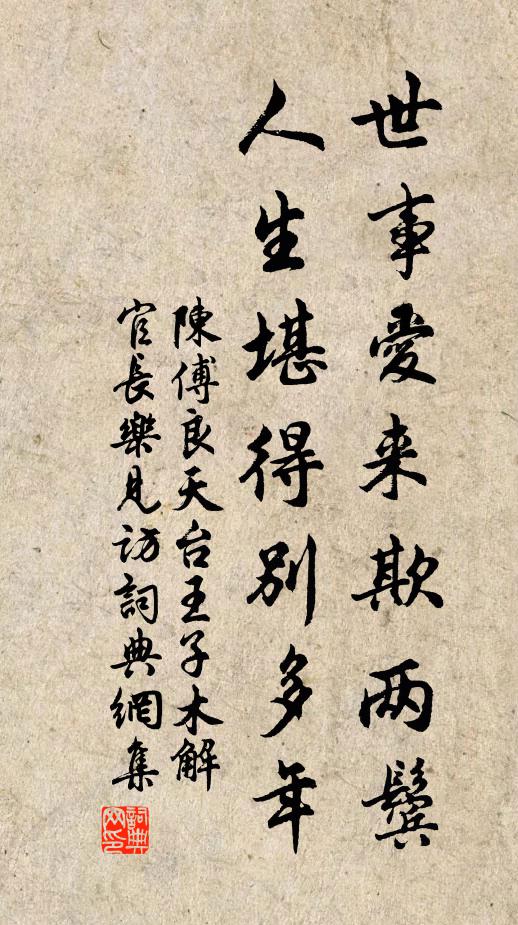 世事愛来欺两鬓
人生堪得別多年
陳傅良天台王子木解
官長樂見访詞典網集
詞典网印